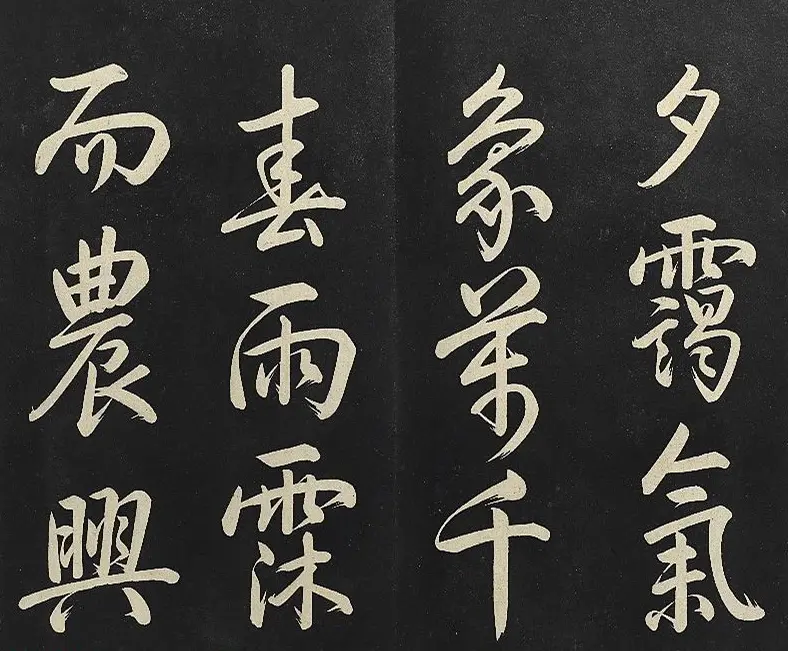 夕靄氣
象萬千
春雨霂
而農興